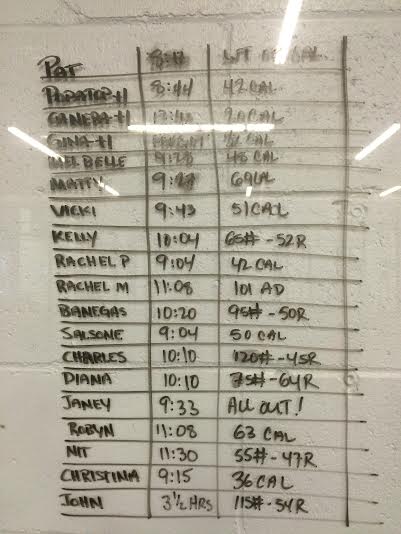 PAT
8:44 42 CAL
CAL
CAL
MEL BELLE 9:28 48 CAL
MATTY
VICKI 9:43 51 CAL
KELLY 10:04 65# - 52R
RACHEL P 9:04 42 CAL
RACHEL M 11:08 101 AD
BANEGAS 10:20 95# - 50R
SALSONE 9:04 50 CAL
CHARLES 10:10 120# - 45R
DIANA 10:10 75# - 64R
JANEY 9:33 ALL OUT!
ROBYN 11:08 63 CAL
NIT 11:30 55# - 47R
CHRISTINA 9:15 36 CAL
JOHN 3½ HRS 115# - 54R